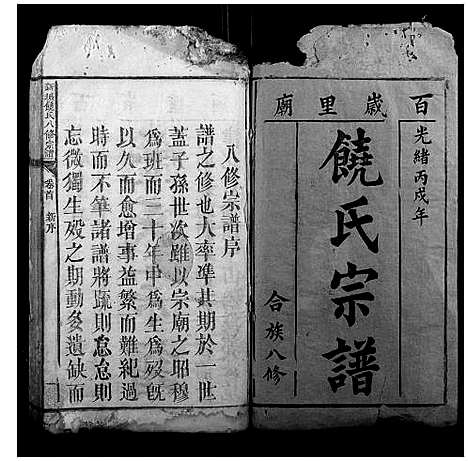 百歲里廟
光緒丙戌年
饒氏宗譜
合族八修
八修宗譜序
譜之修也大率準其期於一世
蓋子孫世次雖以宗廟之昭穆
為班而三十年中為生為歿旣
以久而愈增事益繁而難紀過
時而不筆諸譜將䟽則怠怠則
忘微獨生歿之期動多遺缺而
饒氏八修宗譜
卷首
新序